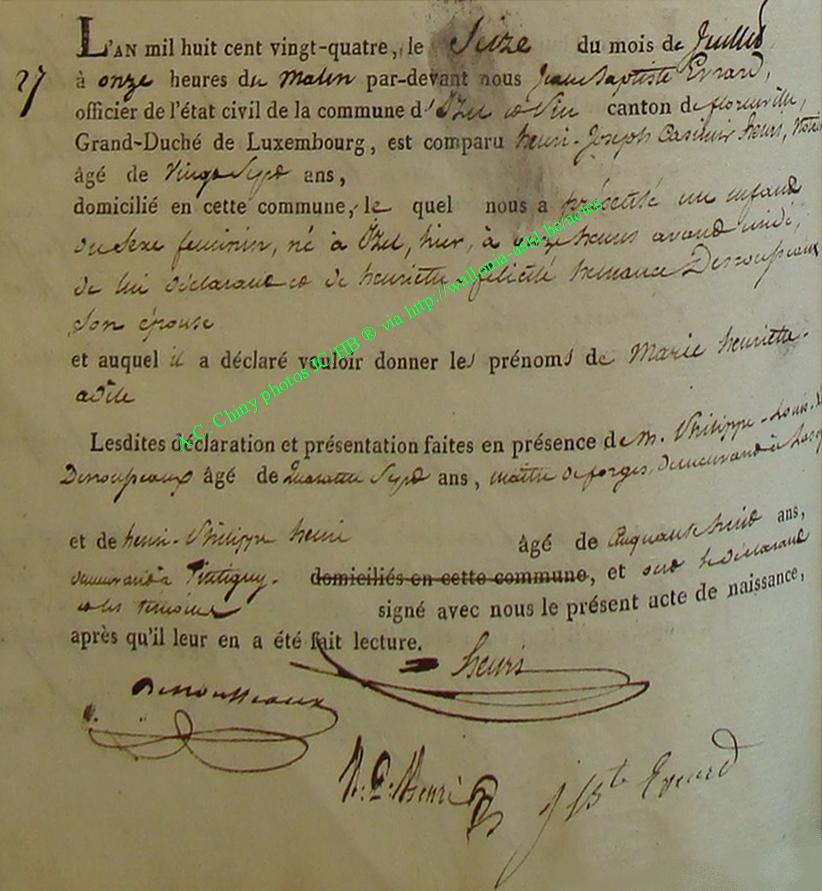 L'AN mil huit cent vingt-quatre, le Seize du mois de Juillet
27
à onze heures du Matin par-devant nous Jean Baptiste Evrard,
officier de l'état civil de la commune d'Izel canton de florenville,
Grand-Duché de Luxembourg, est comparu henri-Joseph Casimir henri,
âgé de Vingt Sept ans,
domicilié en cette commune, le quel nous a présenté un enfant
du Sexe feminin, né à Izel, hier, à onze heures avant midi,
de lui déclarant et de henriette félicité Desrousseaux
son épouse
et auquel il a déclaré vouloir donner les prénoms de Marie henriette-
adèle
Lesdites déclaration et présentation faites en présence de M. Philippe-Louis-
Desrousseaux âgé de Quarante Sept ans, maître de forges, demeurant à
et de henri-Philippe henri âgé de Cinquante huit ans,
demeurant à Tintigny. domiciliés en cette commune, et ont le déclarant
et les témoins signé avec nous le présent acte de naissance,
après qu'il leur en a été fait lecture.
henri
Desrousseaux
h. P. henri
J Bte Evrard
A.C. Chiny photos JC/HB ® via http://wallonia-asbl.be/actes